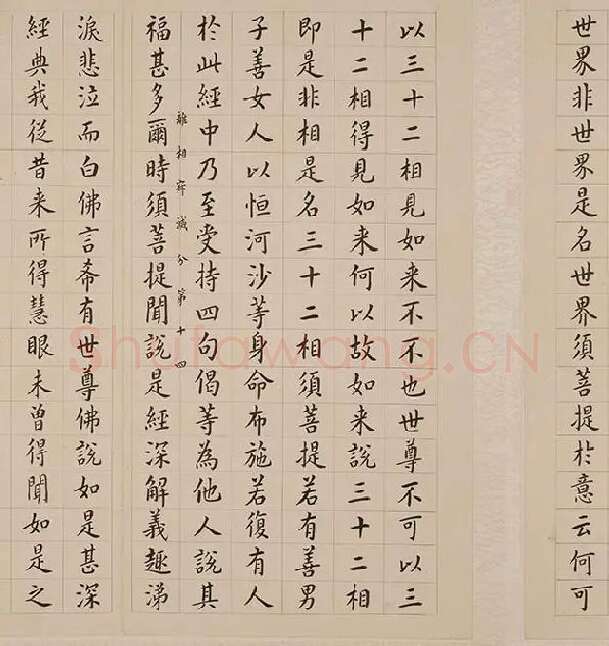 世界非世界是名世界須菩提於意云何可
以三十二相見如来不不也世尊不可以三
十二相得見如来何以故如来說三十二相
即是非相是名三十二相須菩提若有善男
子善女人以恒河沙等身命布施若復有人
於此經中乃至受持四句偈等為他人說其
離相寂滅分第十四
福甚多爾時須菩提聞說是經深解義趣涕
淚悲泣而白佛言希有世尊佛說如是甚深
經典我從昔来所得慧眼未曾得聞如是之
Shufawang.CN